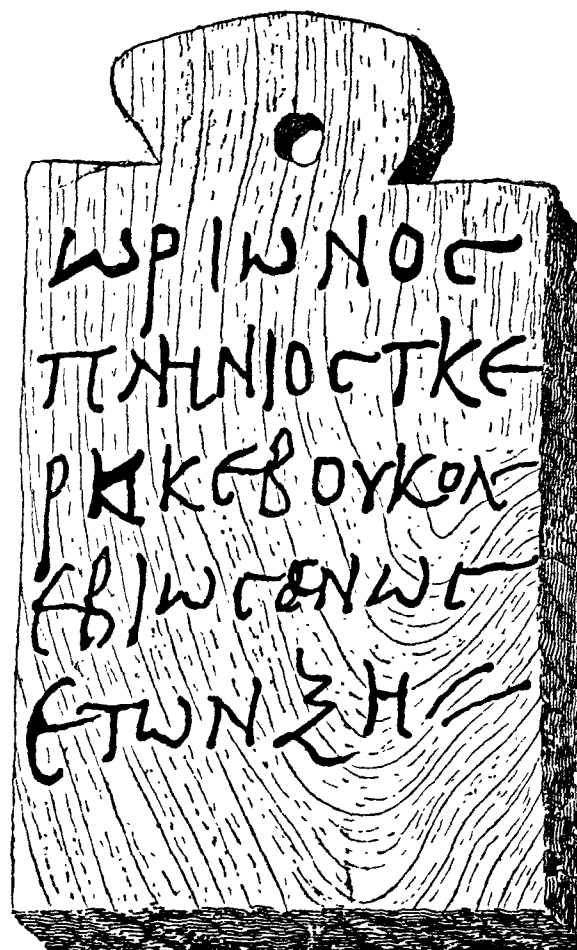 ωριωνος
πληνιοςτκε
ρκηκεβουκολ
εβιωςενως
ετωνξη